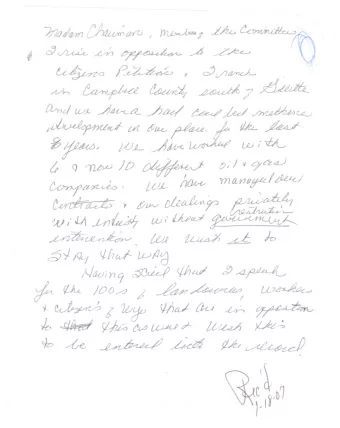 Madam Chairman, members of the Committee
I rise in opposition to the
citizens Petition. I ranch
in Campbell County south of Gillette
and we have had coal bed methane
development in our place for the last
8 years. We have worked with
6 now 10 different oil & gas
companies. We have managed our
contracts & our dealings privately
with industry without government
intervention. We want it to
stay that way
Having said that I speak
for the 100s of landowners, workers
& citizens of Wyo that are in opposition
to that this as want & wish this
to be entered into the record.
Rec'd
1-18-07